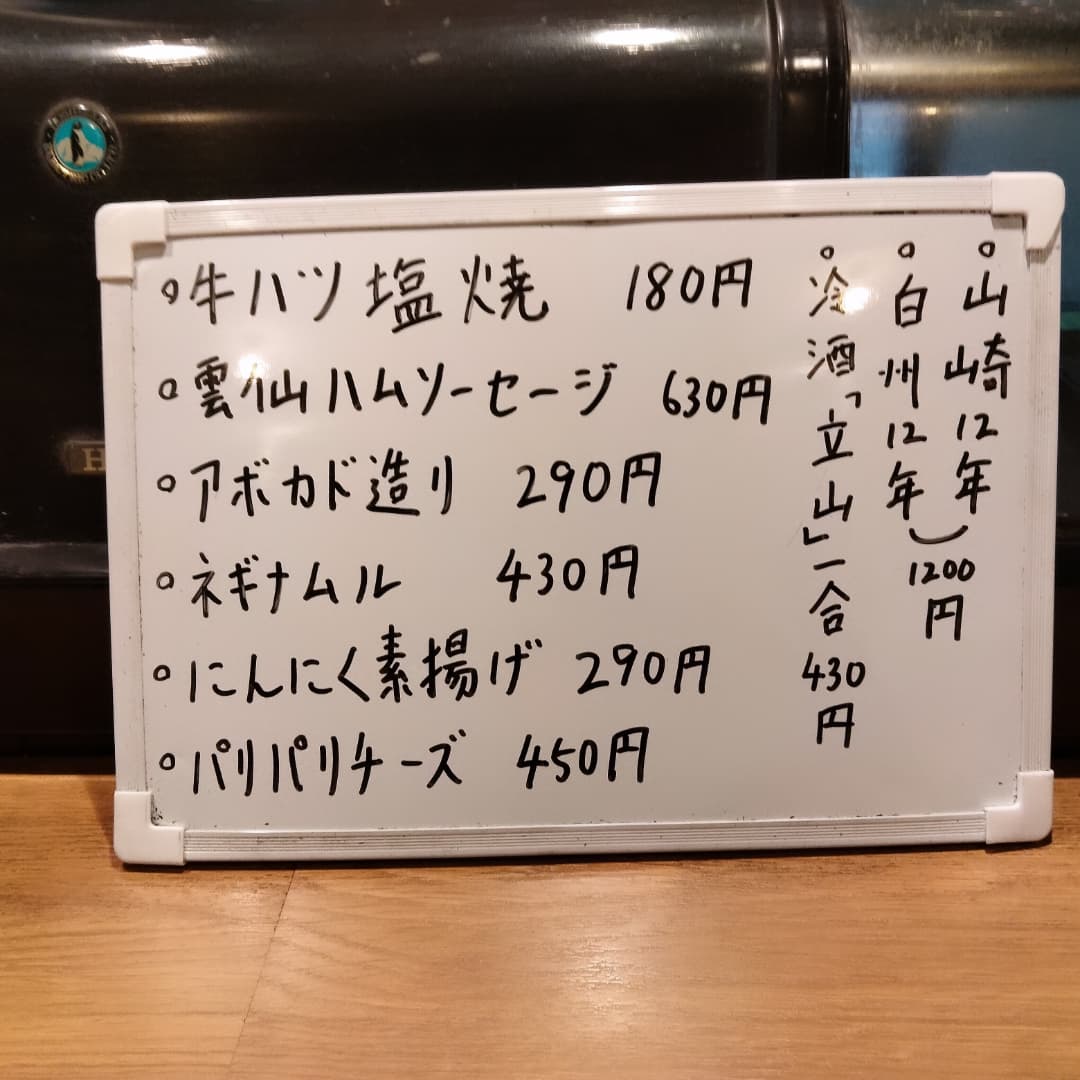 牛ハツ塩焼 180円
雲仙ハムソーセージ 630円
アボカド造り 290円
ネギナムル 430円
にんにく素揚げ 290円
パリパリチーズ 450円
山崎12年
白州12年
1200円
冷酒「立山」一合 430円
H